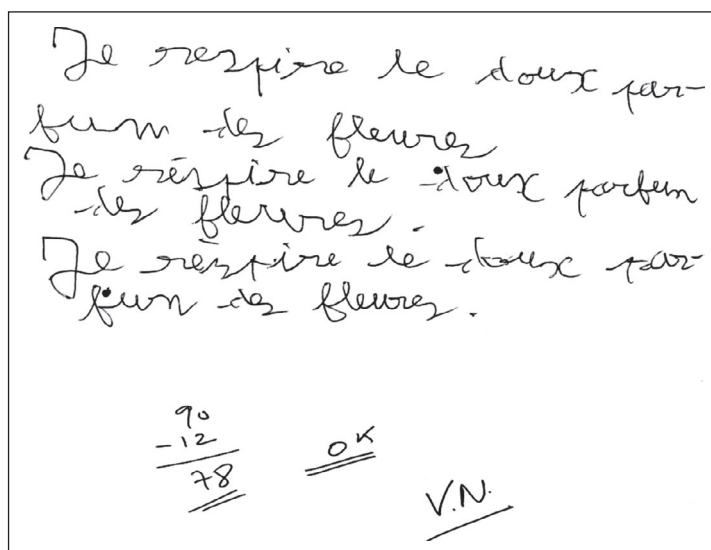 Je respire le doux par-
fum des fleures
Je réspire le doux parfum
des fleures.
Je rèspire le doux par-
fum des fleures.
90
-12
78
OK
V.N.